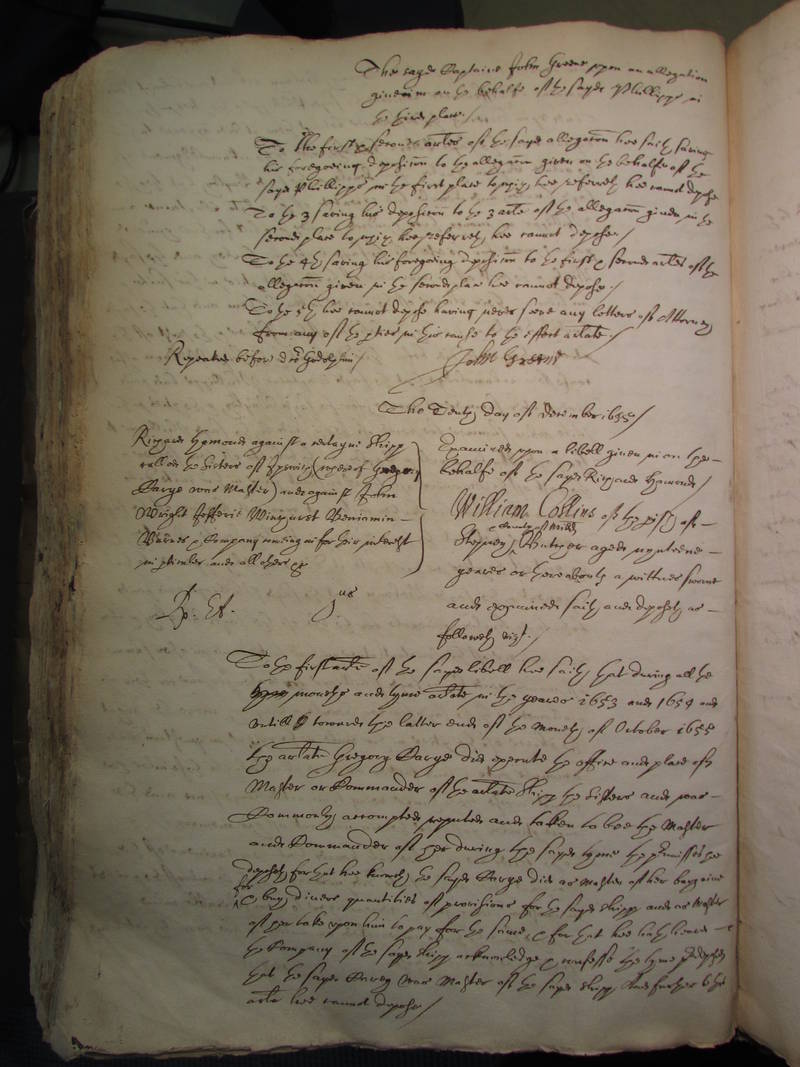 The sayd Captaine John Greene upon an allegation
given in on the behalfe of the sayd Phillipps in
the third place./
To the first & second arles of the sayd allegaon hee saith saving
his foregoeing deposicon to the allegaon given on the behalfe of the
sayd Phillipps in the first place to which hee referreth hee cannot depose
To the 3 saving his deposicon to the 3 arle of the allegaon given in the
second place to which hee referreth hee cannot depose./
To the 4th saving his foregoeing deposicon to the first & second arles of the
allegaon given in the second place hee cannot depose./
To the 5th hee cannot depose having never seene any letters of Attorney
from any of the pties in this cause to the effect arlate./
Repeated before dcor Godolphin/
John Greene
The Tenth day of December 1655/
Richard Hymonds against a certayne shipp
called the Sisters of Ipswich (whereof Gregory
Carye was Master) and against John
Wright Jefferie Winhurst Beniamin
& Company coming in for their interest
in pticuler and all others &c
Examined upon a libell given in on the
behalfe of the sayd Richard Hymonds/
Rp. Et.
jus
William Collins of the pish of
Stepney & County of Midd
aged nyneteene
yeares or thereabouts a wittnes sworne
and examined saith and deposeth as
followeth vizt./
To the first arle of the sayd libell hee saith that during all the
months and tyme arlate in the yeares 1653 and 1654 and
untill towards the latter end of the moneth of October 1655
the arlate Gregory Carye did execute the office and place of
Master or Commander of the arlate shipp the Sisters and was
Commonly accompted reputed and taken to bee the Master
and Commander of her during the sayd tyme the premisses he
deposeth for that hee knoweth the sayd Carye did as Master of her bargaine
for & buy divers quantities of provisions for the sayd shipp and as Master
of her take upon him to pay for the same, & for that hee hath heard
the Company of the sayd shipp acknowledge & confesse the tyme
that the sayd Carey was Master of the sayd shipp And further to this
arle hee cannot depose/